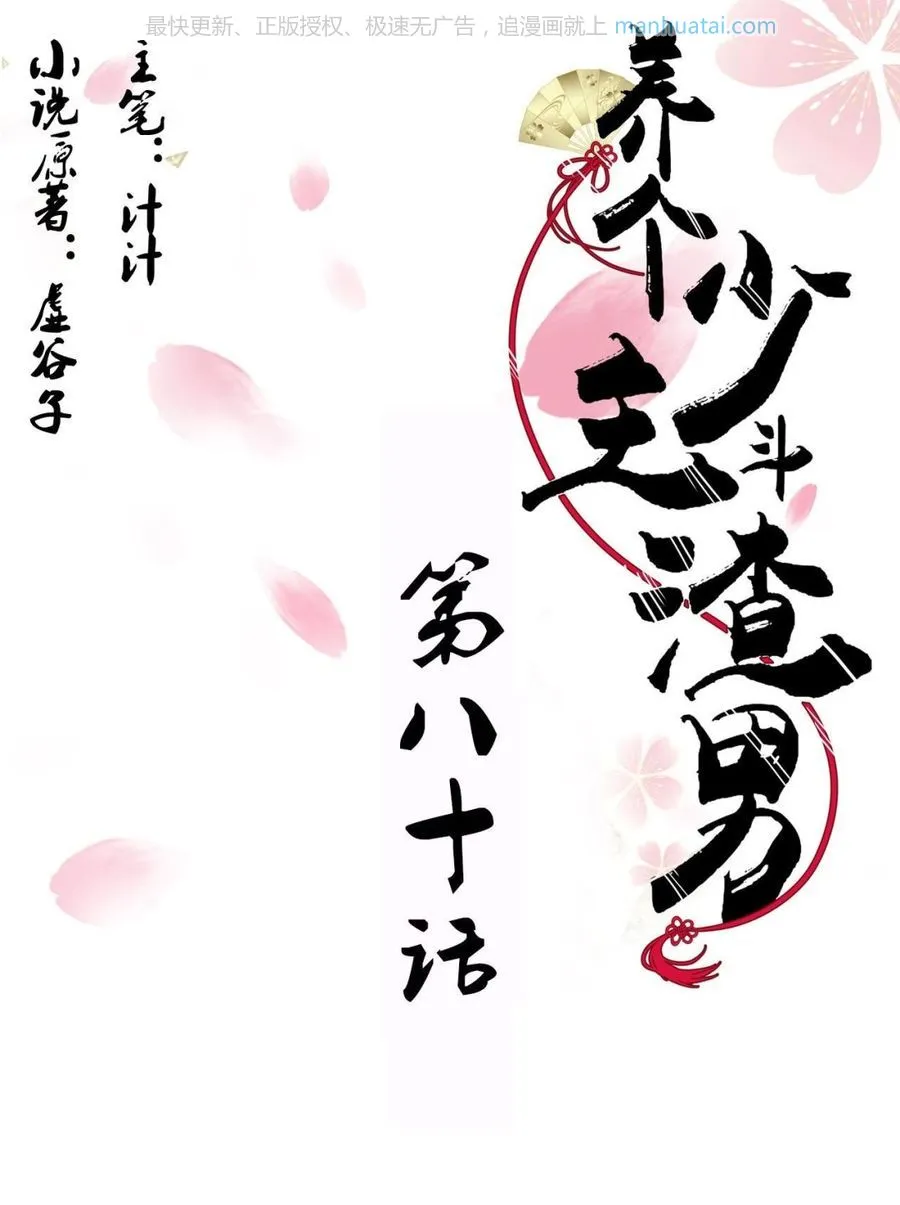 最快更新、正版授权、极速无广告，追漫画就上 manhuatai.com
养个少主斗渣男
第八十话
主笔：汁汁
小说原著：虚谷子